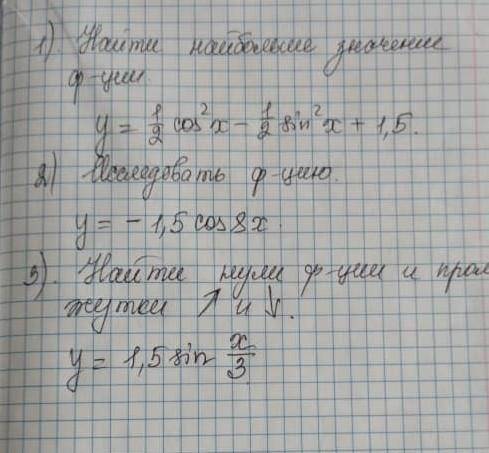 1). Найти наибольшее значение
ф-ции.
y = 1/2 cos²x - 1/2 sin²x + 1,5.
2) Исследовать ф-цию.
y = - 1,5 cos8x.
3). Найти нули ф-ции и пром
жутки ↗ и ↘.
y = 1,5 sin x/3